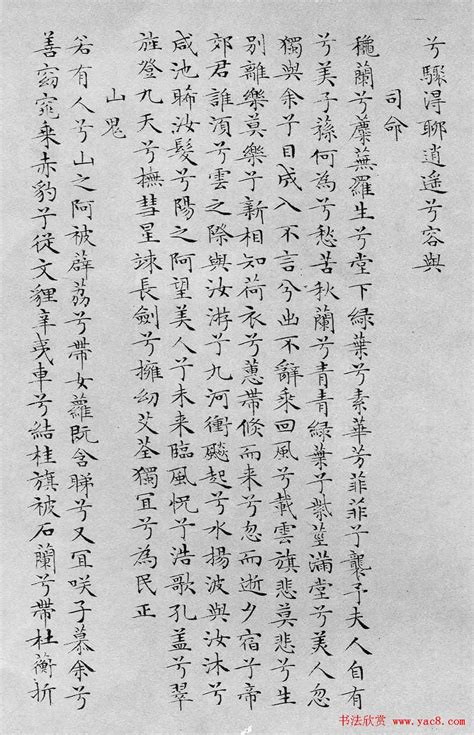 兮驟得聊逍遙兮容與
司命
穐蘭兮麋蕪羅生兮堂下綠葉兮素華芳菲菲兮襲予夫人自有
兮美子蓀何為兮愁苦秋蘭兮青青綠葉兮紫莖滿堂兮美人忽
獨與余兮目成入不言兮出不辭乘回風兮載雲旗悲莫悲兮生
別離樂莫樂兮新相知荷衣兮蕙帶倏而来兮忽而逝夕宿兮帝
郊君誰湏兮雲之際與汝游兮九河衝飈起兮水揚波與汝沐兮
咸池晞汝髮兮陽之阿望美人兮未来臨風怳兮浩歌孔盖兮翠
旌登九天兮撫彗星竦長劍兮擁幼艾荃獨冝兮為民正
山鬼
若有人兮山之阿被薜荔兮帶女蘿既含睇兮又冝咲子慕余兮
善窈窕乘赤豹兮從文貍辛夷車兮結桂旗被石蘭兮帶杜蘅折
书法欣赏 www.yac8.com